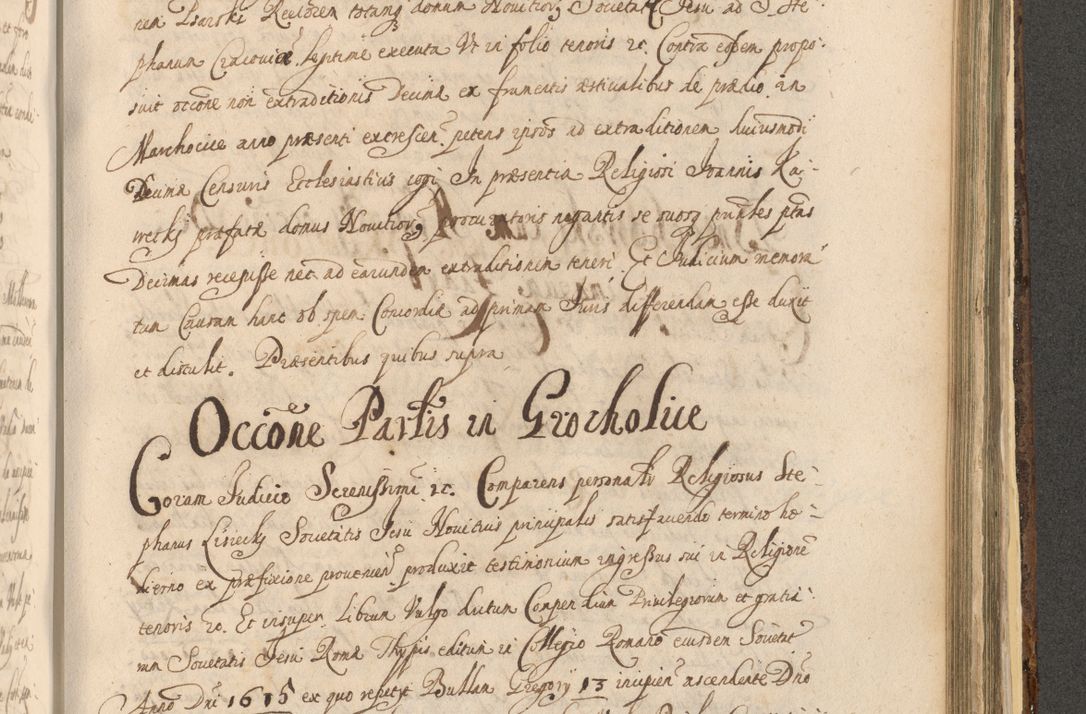 ren Psarski Rectorem totamq domum Novitiorz Societat Jesu ad S. Ste:
phanum Cracoviæ legitimè executa Vt in folio tenoris rc. Contra eosdem propo:
suit occōne non extraditionis Decimæ ex frumentis æstivalibus de prædio in
Marchocice anno præsenti excrescen. petens ipsos ad extraditionem huiusmodi
Decimæ Censuris Ecclesiasticis cogi In præsentia Religiosi Joannis Ka:
wecky præfatæ domus Novitiorz procuratoris negantis se suosq pnntes ptas
Decimas recepisse nec ad earundem extraditionem teneri. Et Judicium memora
tum Causam hanc ob spem Concordiæ ad primam Juris differendam esse duxit
et distulit. Præsentibus quibus supra
Occōne Partis in Grocholice
Coram Judicio Serenissimi rc. Comparens personalr Religiosus Ste:
phanus Lisiecky Societatis Jesu Novitius principalis satisfaciendo termino ho:
dierno ex præfixione provenien produxit testimonium ingressus sui in Religione
tenoris rc. Et insuper librum Vulgo dictum Compendium Privilegiorum et gratia:
rum Societatis Jesu Romæ Thypis editum in Collegio Romano eiusdem Societat
Anno Dni 1615 ex quo repetyt Bullam Gregory 13 incipien ascendente Dno